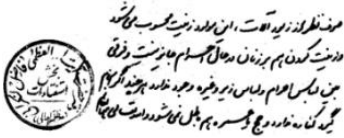 صرف نظر از زیور آلات، این موارد زینت محسوب می‌شود
و زینت کردن هم بر زنان در حال احرام جایز نیست و فرقی
بین لباس احرام و لباس زیر و غیره وجود ندارد هر چند اگر
گیرد کفاره ندارد و حج و عمره هم باطل نمی‌شود
دفتر
استفتاءات